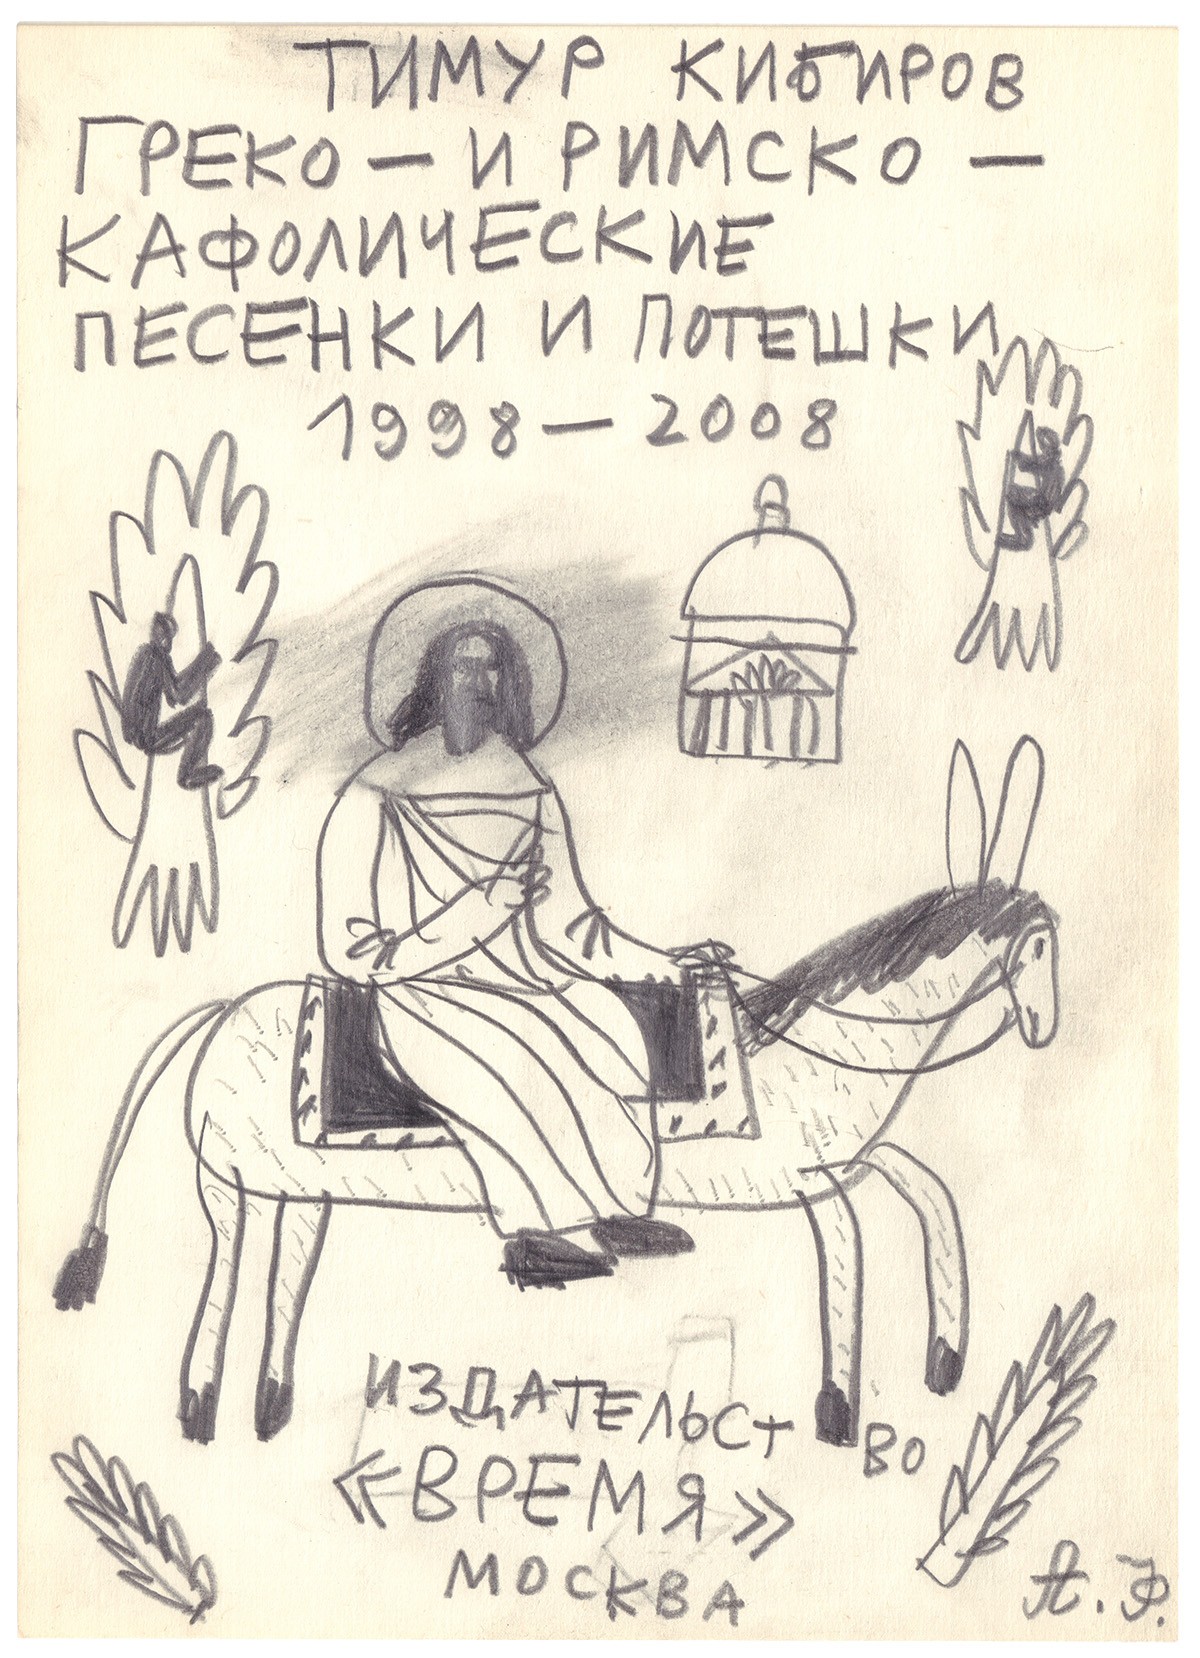 ТИМУР КИБИРОВ
ГРЕКО — И РИМСКО —
КАФОЛИЧЕСКИЕ
ПЕСЕНКИ И ПОТЕШКИ
1998 — 2008
ИЗДАТЕЛЬСТ ВО
«ВРЕМЯ»
МОСКВА
А. Ф.